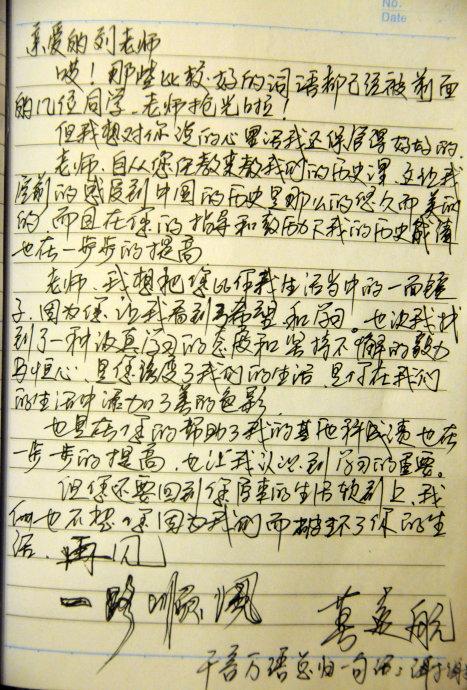 No.
Date
亲爱的刘老师
哎！那些比较好的词语都已经被前面
的几位同学、老师抢光啦！
但我想对你说的心里话我还保管得好好的.
老师,自从您任教来教我们的历史课,立让我
的感受到中国的历史是那么的悠久而美
的,而且在您的指导和教历下我的历史成绩
也在一步步的提高
老师,我想把您比作我生活当中的一面镜
子,因为您让我看到了希望和学习。也让我找
到了一种认真学习的态度和坚持不懈的毅力
与恒心,是您改变了我们的生活,是你在我们
的生活中添加了美的色彩
也是在您的帮助了我的其他科成绩也在
一步步的提高,也让我认识到学习的重要。
但你还要回到你原来的生活轨到上,我
们也不想您因为我们而破坏了你的生
活.再见
一路顺风
航
千言万语总归一句话:谢谢